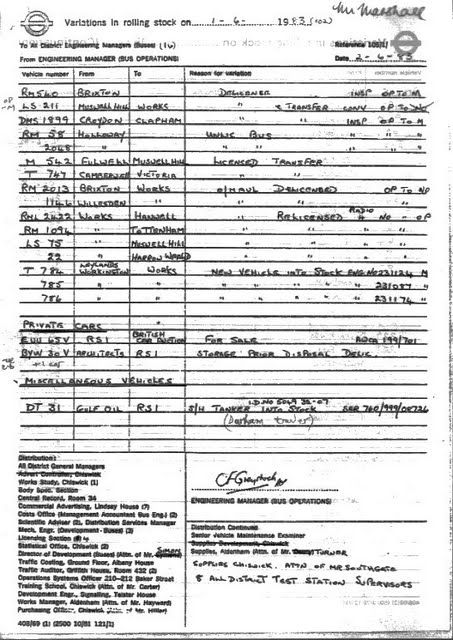 Mr Marshall
Variations in rolling stock on 1-6- 1983 (102)
To All District Engineering Managers (Buses) (16)
Reference 105/1
From ENGINEERING MANAGER (BUS OPERATIONS)
Date 2-6-83
Vehicle number From To Reason for variation
RM 560 BRIXTON DELICENCE INSP OP TO M
OP-M LS 211 MUSWELL HILL WORKS " & TRANSFER CONV OP TO NO
DMS 1899 CROYDON CLAPHAM " " INSP OP TO M
RM 58 HOLLOWAY UNLIC BUS " " "
2048 " " " " " "
M 542 FULWELL MUSWELL HILL LICENSED TRANSFER
T 747 CAMBERWELL VICTORIA " "
RM 2013 BRIXTON WORKS O/HAUL DELICENCED OP TO NO
1146 WILLESDEN " " " " "
RML 2422 WORKS HANWELL RELICENSED RADIO NO - OP
RM 1094 " TOTTENHAM " " "
LS 75 " MUSWELL HILL " " "
22 " HARROW WEALD " " "
T 784 LEYLANDS WORKINGTON WORKS NEW VEHICLE INTO STOCK ENG NO 231124 M
785 " " " " " " " 231087 "
786 " " " " " " " 231174 "
PRIVATE CARS
EUU 65V RS1 BRITISH CAR AUCTION FOR SALE 199/701
BYW 30V ARCHITECTS RS1 STORAGE PRIOR DISPOSAL DELIC.
MISCELLANEOUS VEHICLES
DT 31 GULF OIL RS1 S/H TANKER INTO STOCK I.D.NO 5049 32-07 SER 760/999/00726
Distribution:
All District General Managers
Advert Controller, Chiswick
Works Study, Chiswick (1)
Body Spec. Section
Central Record, Room 34
Commercial Advertising, Lindsey House (7)
Costs Office (Management Accountant Bus Eng.) (2)
Scientific Adviser (2), Distribution Services Manager
Mech. Engr. (Development - Buses) (3)
Licensing Section 4
Statistical Office, Chiswick (2)
Director of Development (Buses) (Attn. of Mr. SIMON)
Traffic Costing, Ground Floor, Albany House
Traffic Author, Griffith House, Room 432 (2)
Operations Systems Officer 210-212 Baker Street
Training School, Chiswick (Attn. of Mr. Carter)
Development Engr., Signalling, Telstar House
Works Manager, Aldenham (Attn. of Mr. Hayward)
Purchasing Officer, Chiswick (Attn. of Mr. Hiller)
408/69 (1) (2500 10/81 121/1)
ENGINEERING MANAGER (BUS OPERATIONS)
Distribution Continued
Senior Vehicle Maintenance Examiner
Supplies Development, Chiswick
Supplies, Aldenham (Attn. of Mr. TURNER
SUPPLIES CHISWICK. ATTN. OF MR SOUTHGATE
8 ALL DISTRICT TEST STATION SUPERVISORS